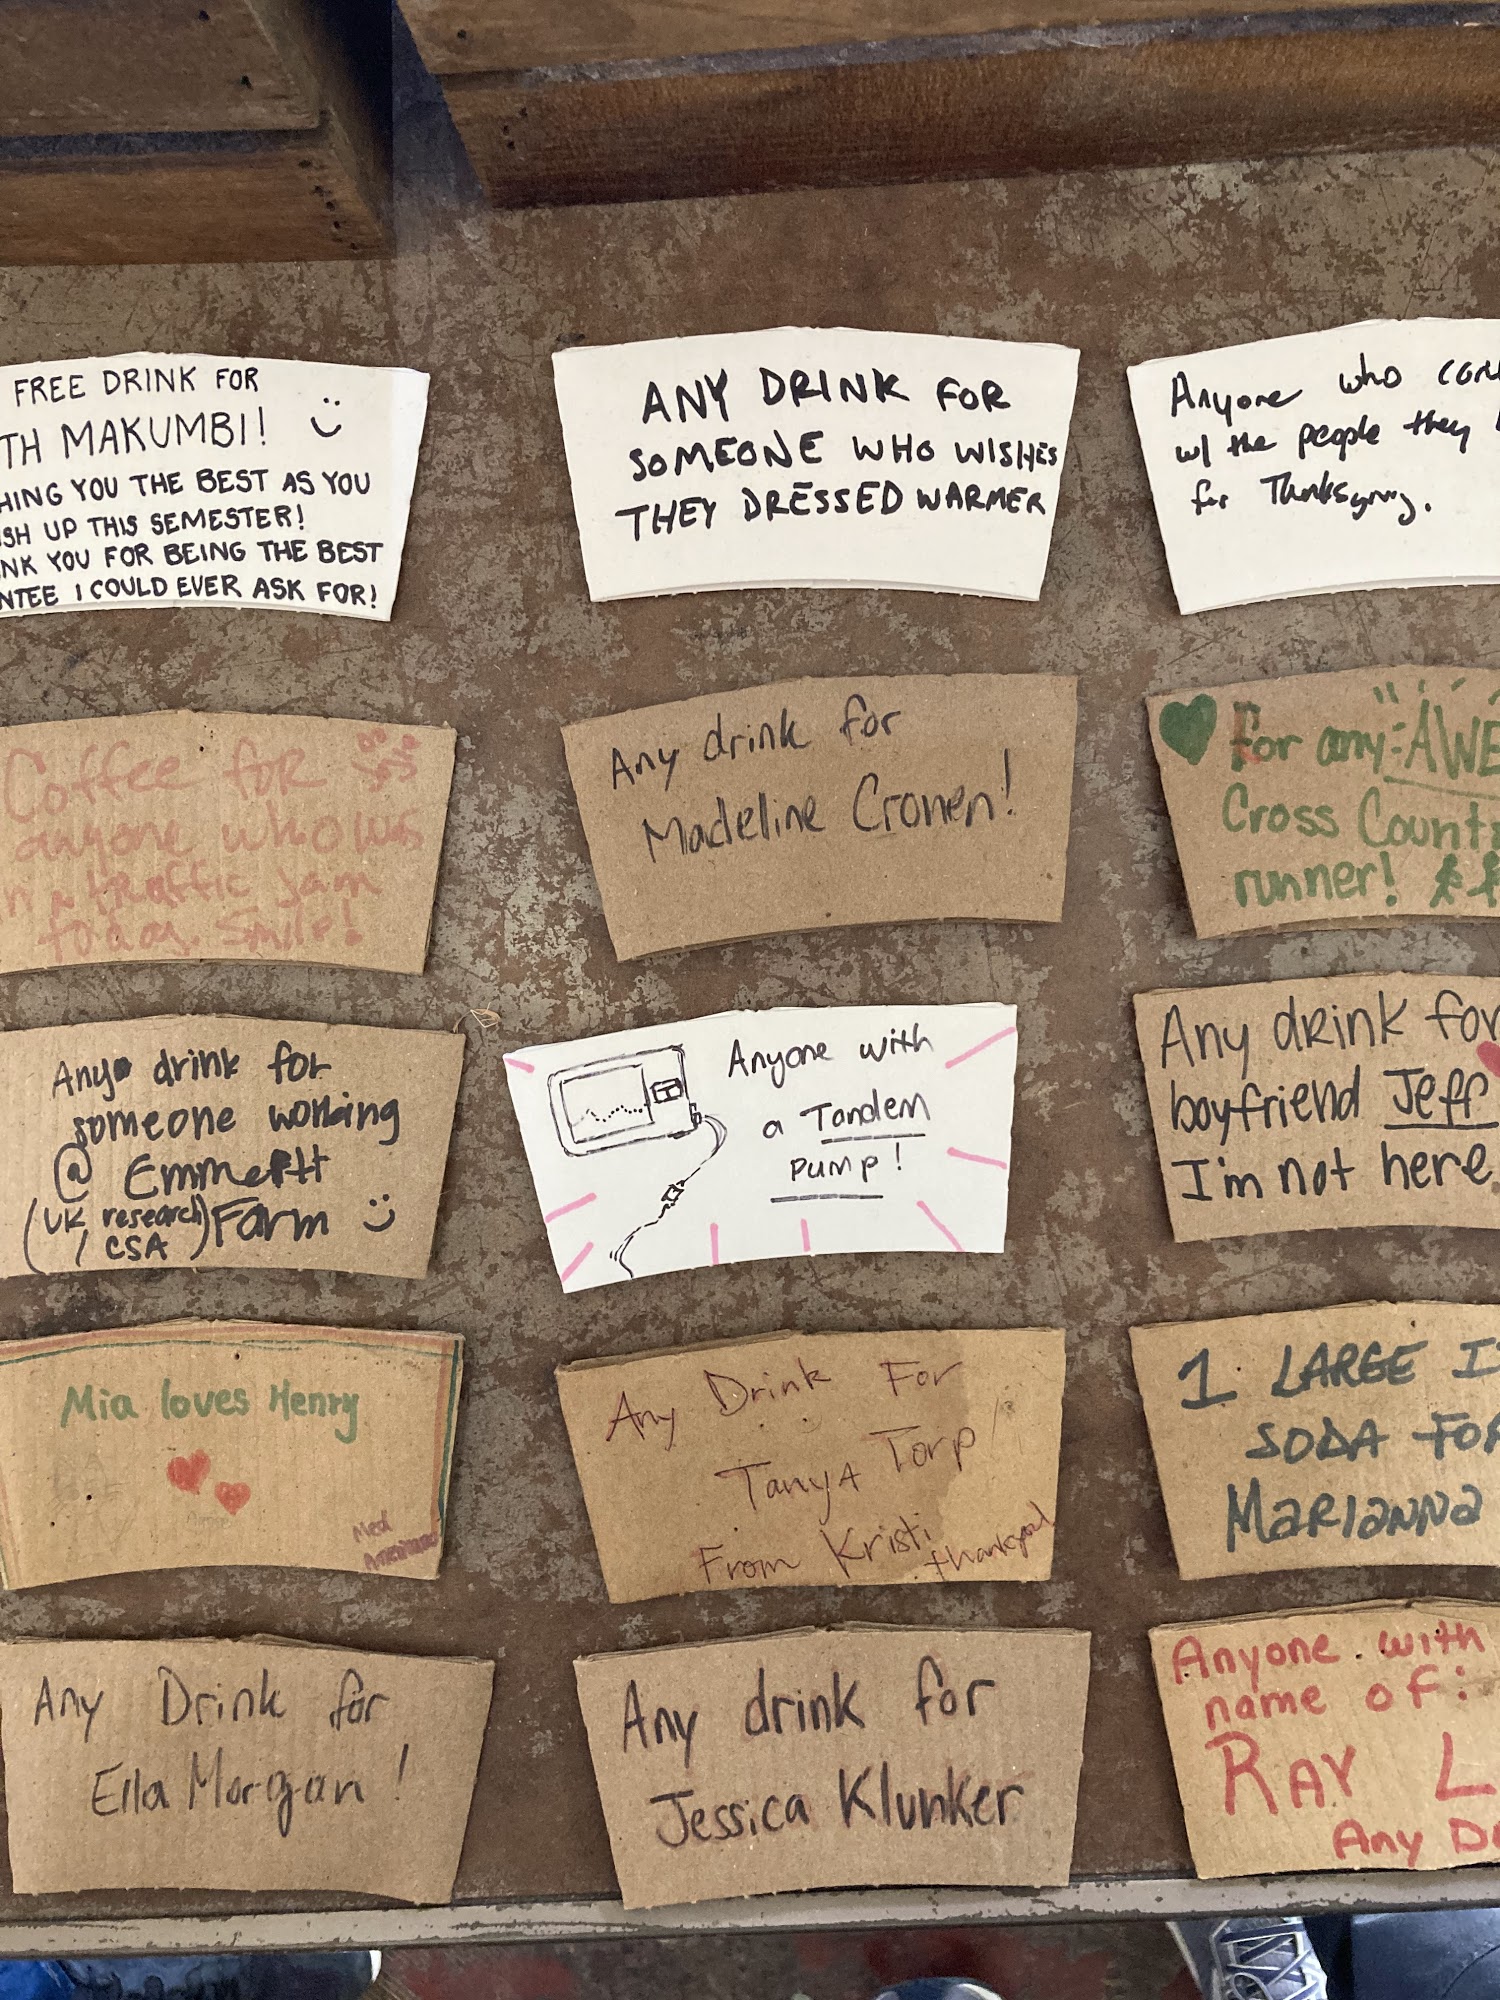 FREE DRINK FOR
TH MAKUMBI!
HING YOU THE BEST AS YOU
SH UP THIS SEMESTER!
NK YOU FOR BEING THE BEST
NTEE I COULD EVER ASK FOR!
ANY DRINK FOR
SOMEONE WHO WISHES
THEY DRESSED WARMER
Anyone who
w/ the people they
for Thanksgiving.
Coffee for
anyone who was
in a traffic jam
today. Smile!
Any drink for
Madeline Cronen!
For any AWE
Cross Count
runner!
Any drink for
someone working
@ Emmertt
(UK research
/ CSA) Farm
Anyone with
a Tandem
pump!
Any drink for
boyfriend Jeff
I'm not here
Mia loves Henry
Med
Any Drink For
Tanya Torp!
From Kristi
1 LARGE
SODA FOR
MARIANNA
Any Drink for
Ella Morgan!
Any drink for
Jessica Klunker
Anyone with
name of:
RAY L
Any D